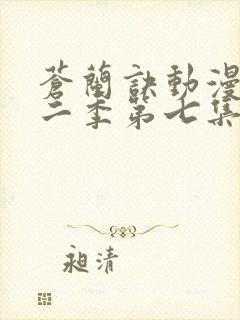 蒼蘭訣動漫
二季第七集
昶清